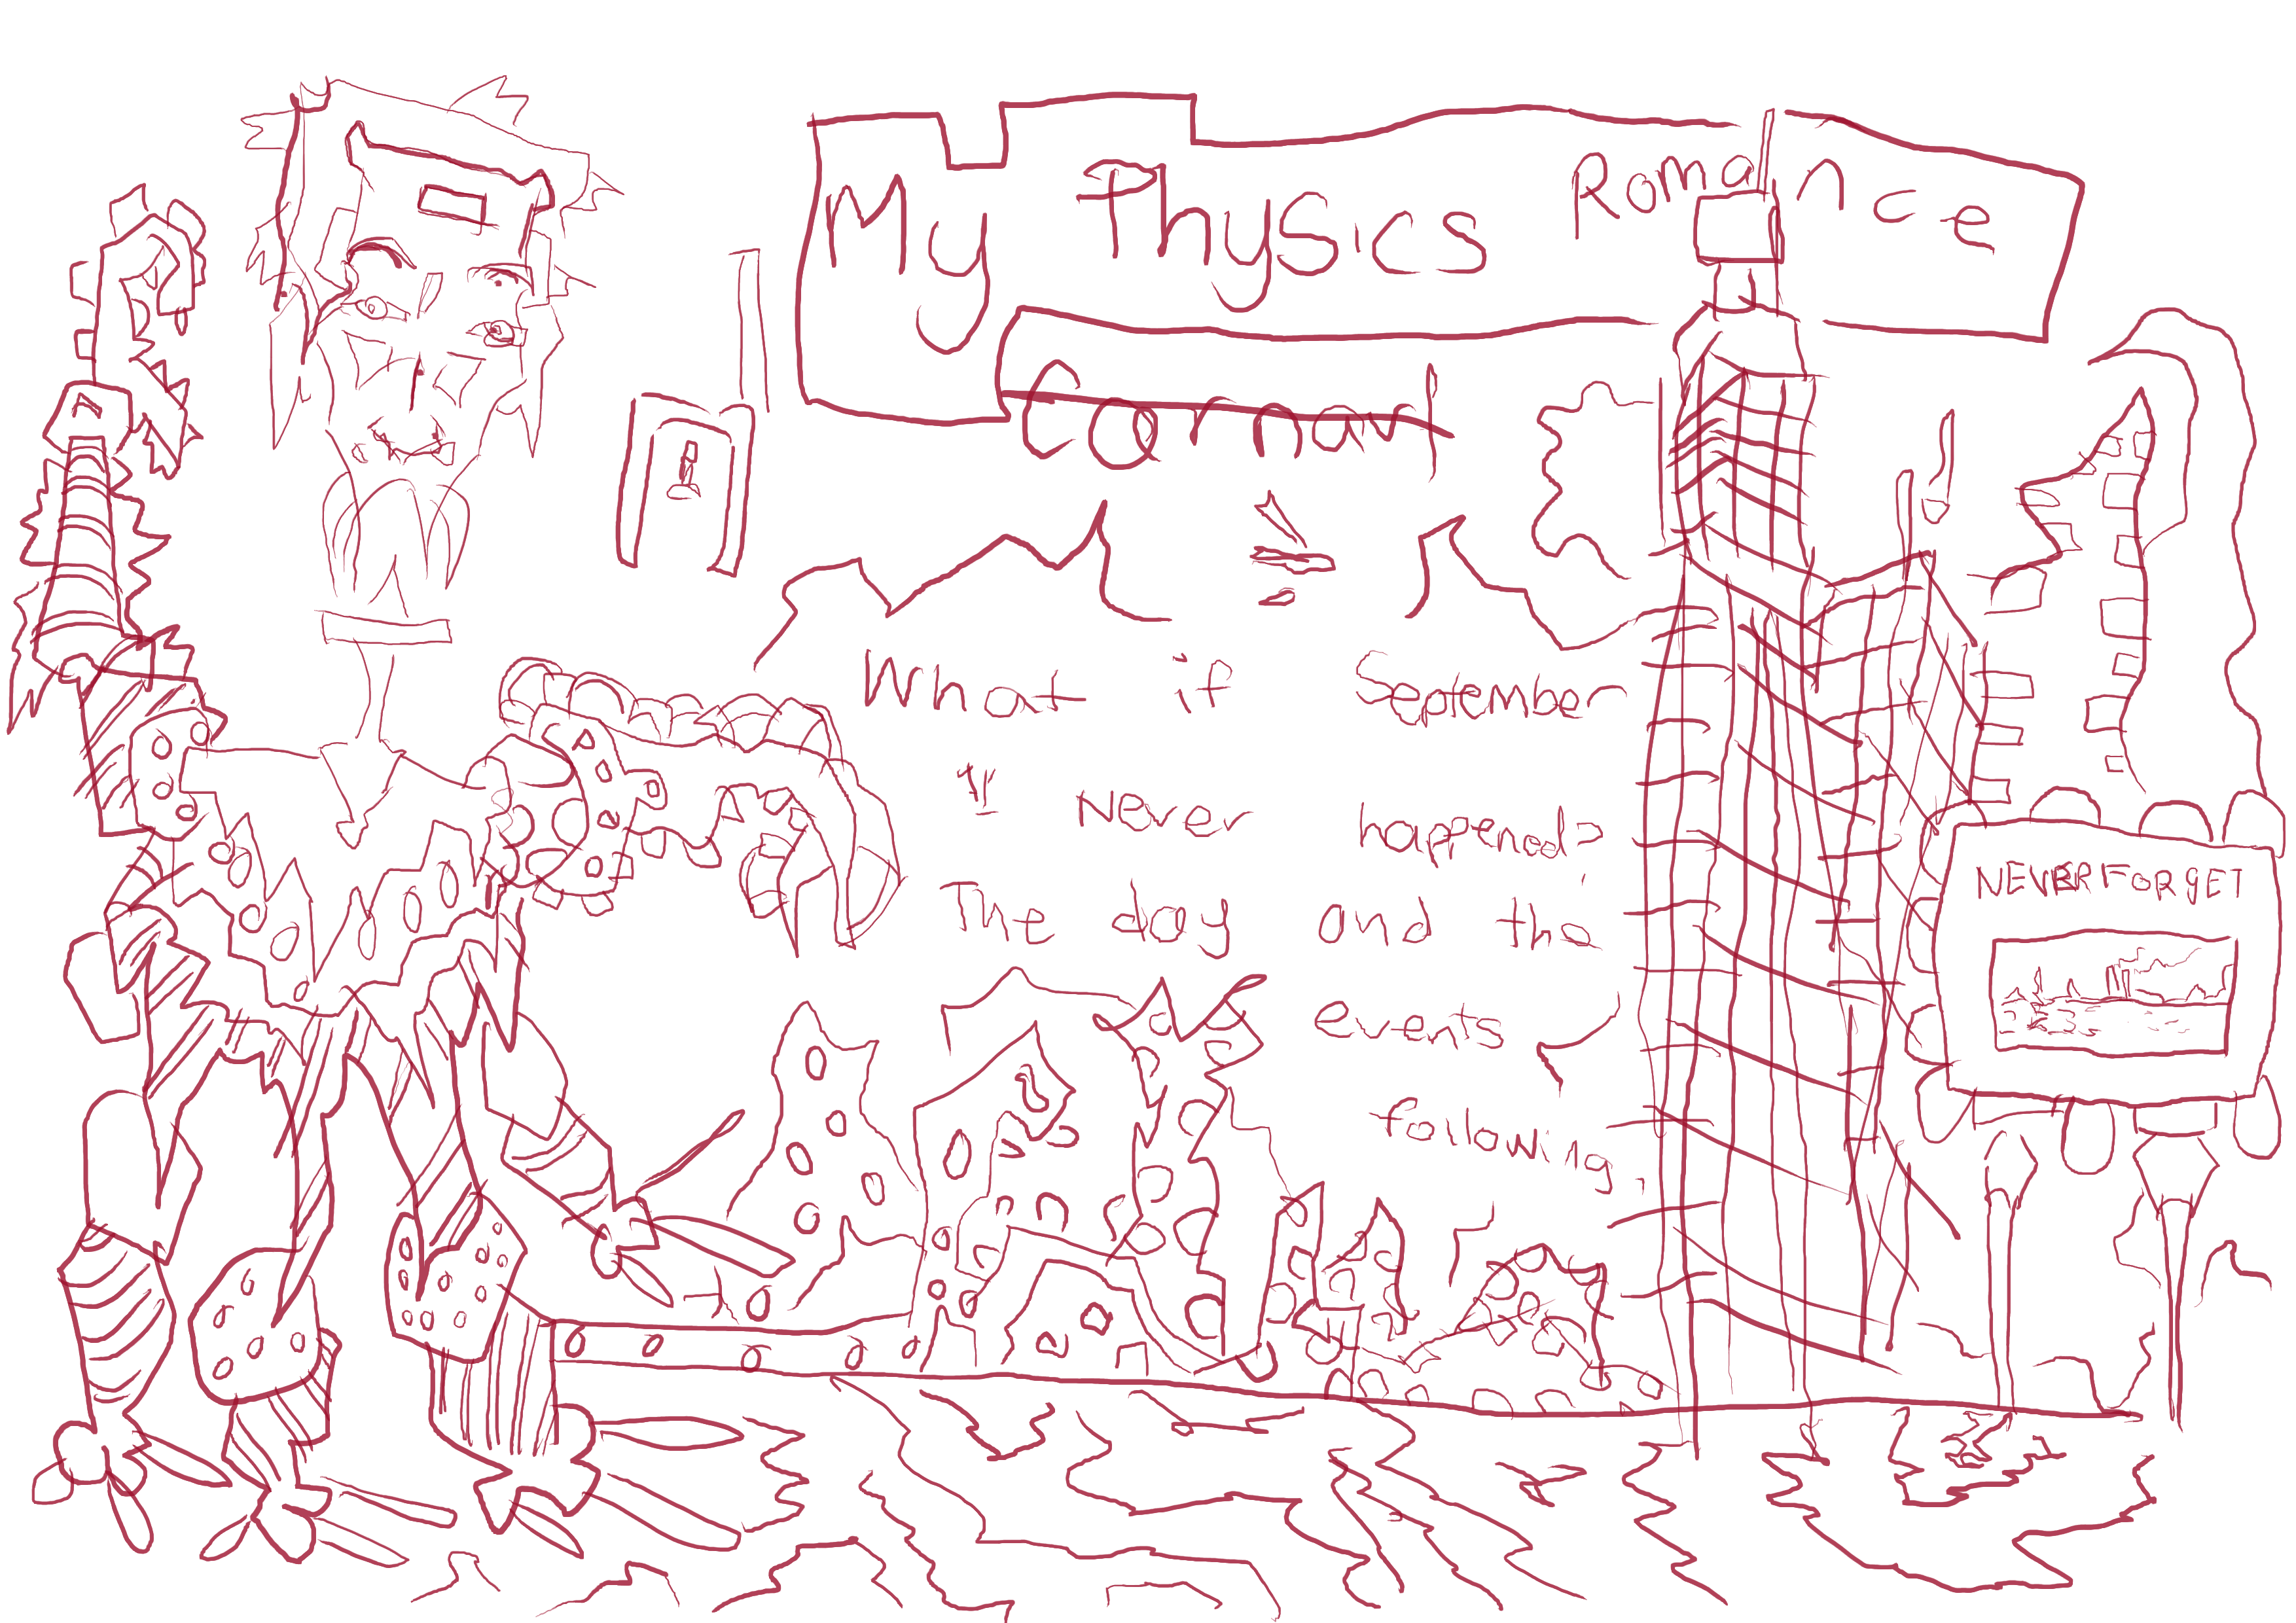 My Physics Romance
Cormar
What if September
11 Never happened?
The day and the
events
following.
NEVER FORGET